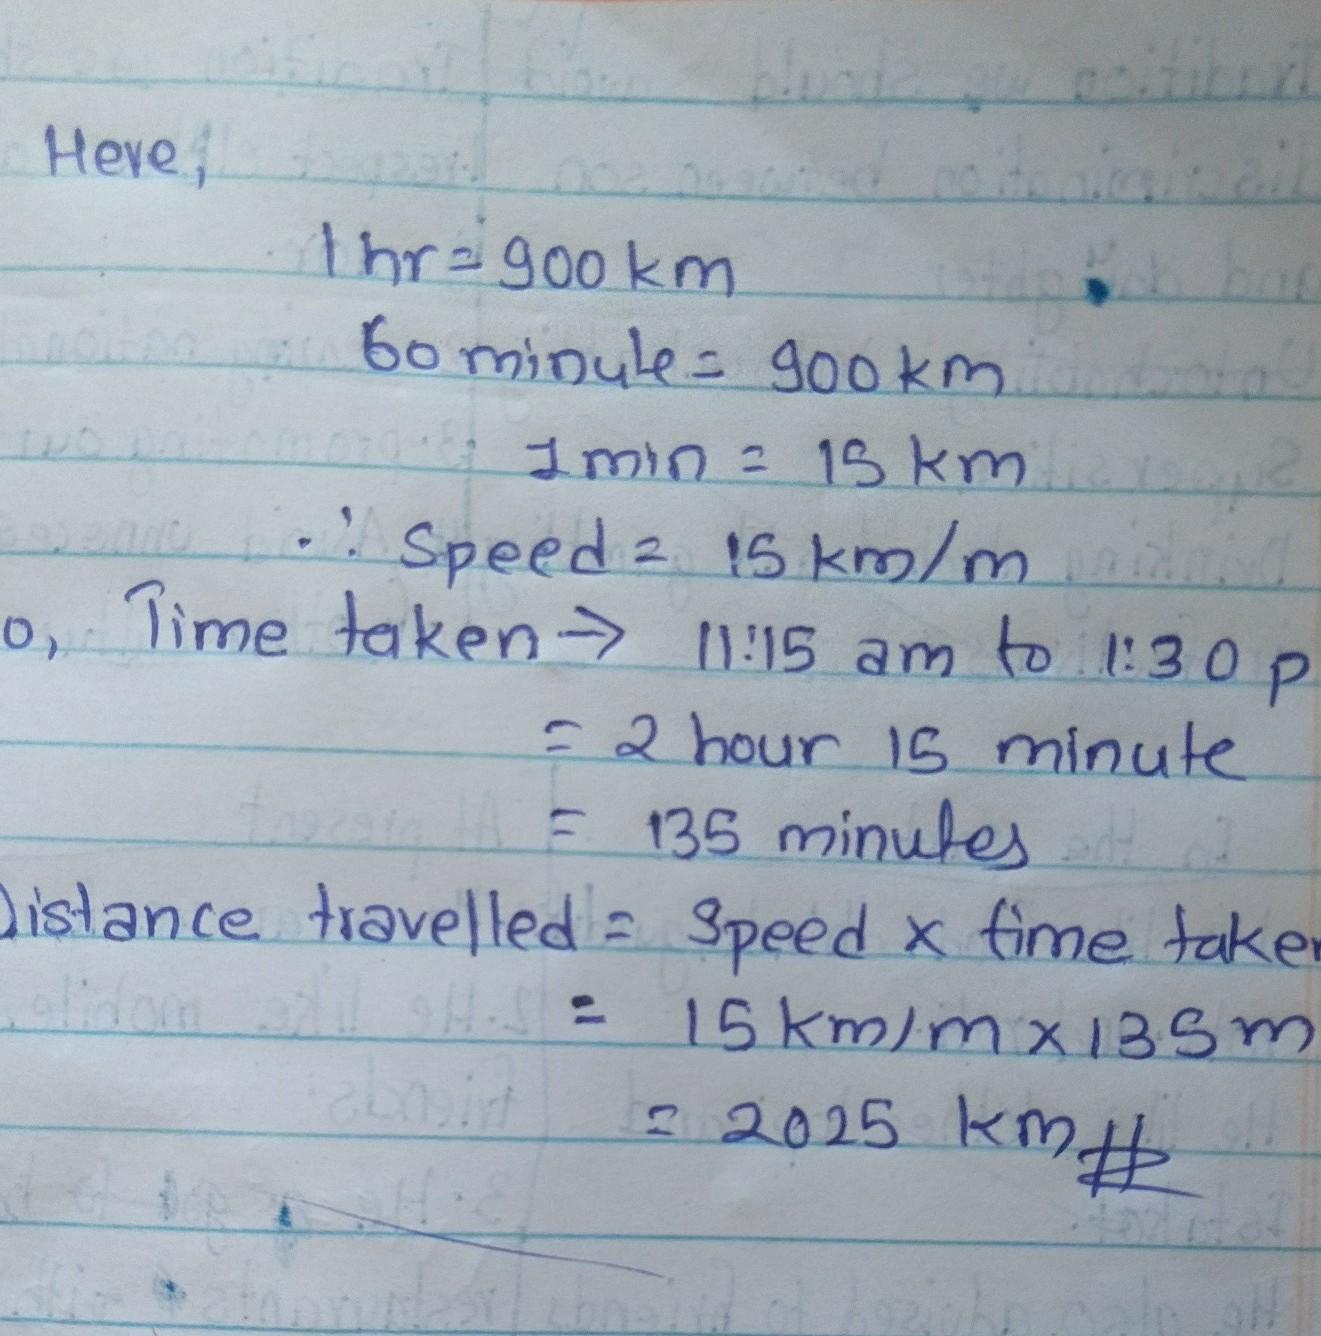 Here,
1 hr = 900 km
60 minute = 900 km
1 min = 15 km
∴ Speed = 15 km/m
o, Time taken → 11:15 am to 1:30 p
= 2 hour 15 minute
= 135 minutes
Distance travelled = Speed x time taken
= 15 km/m x 135 m
= 2025 km #